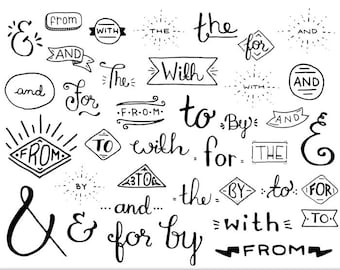 &
from
WITH
THE
the
for
AND
AND
The
With
WITH
AND
and
For
FROM
to
By
AND
&
FROM
TO
with
for
THE
BY
TO
the
BY
to
FOR
and
&
&
for by
with
TO
FROM